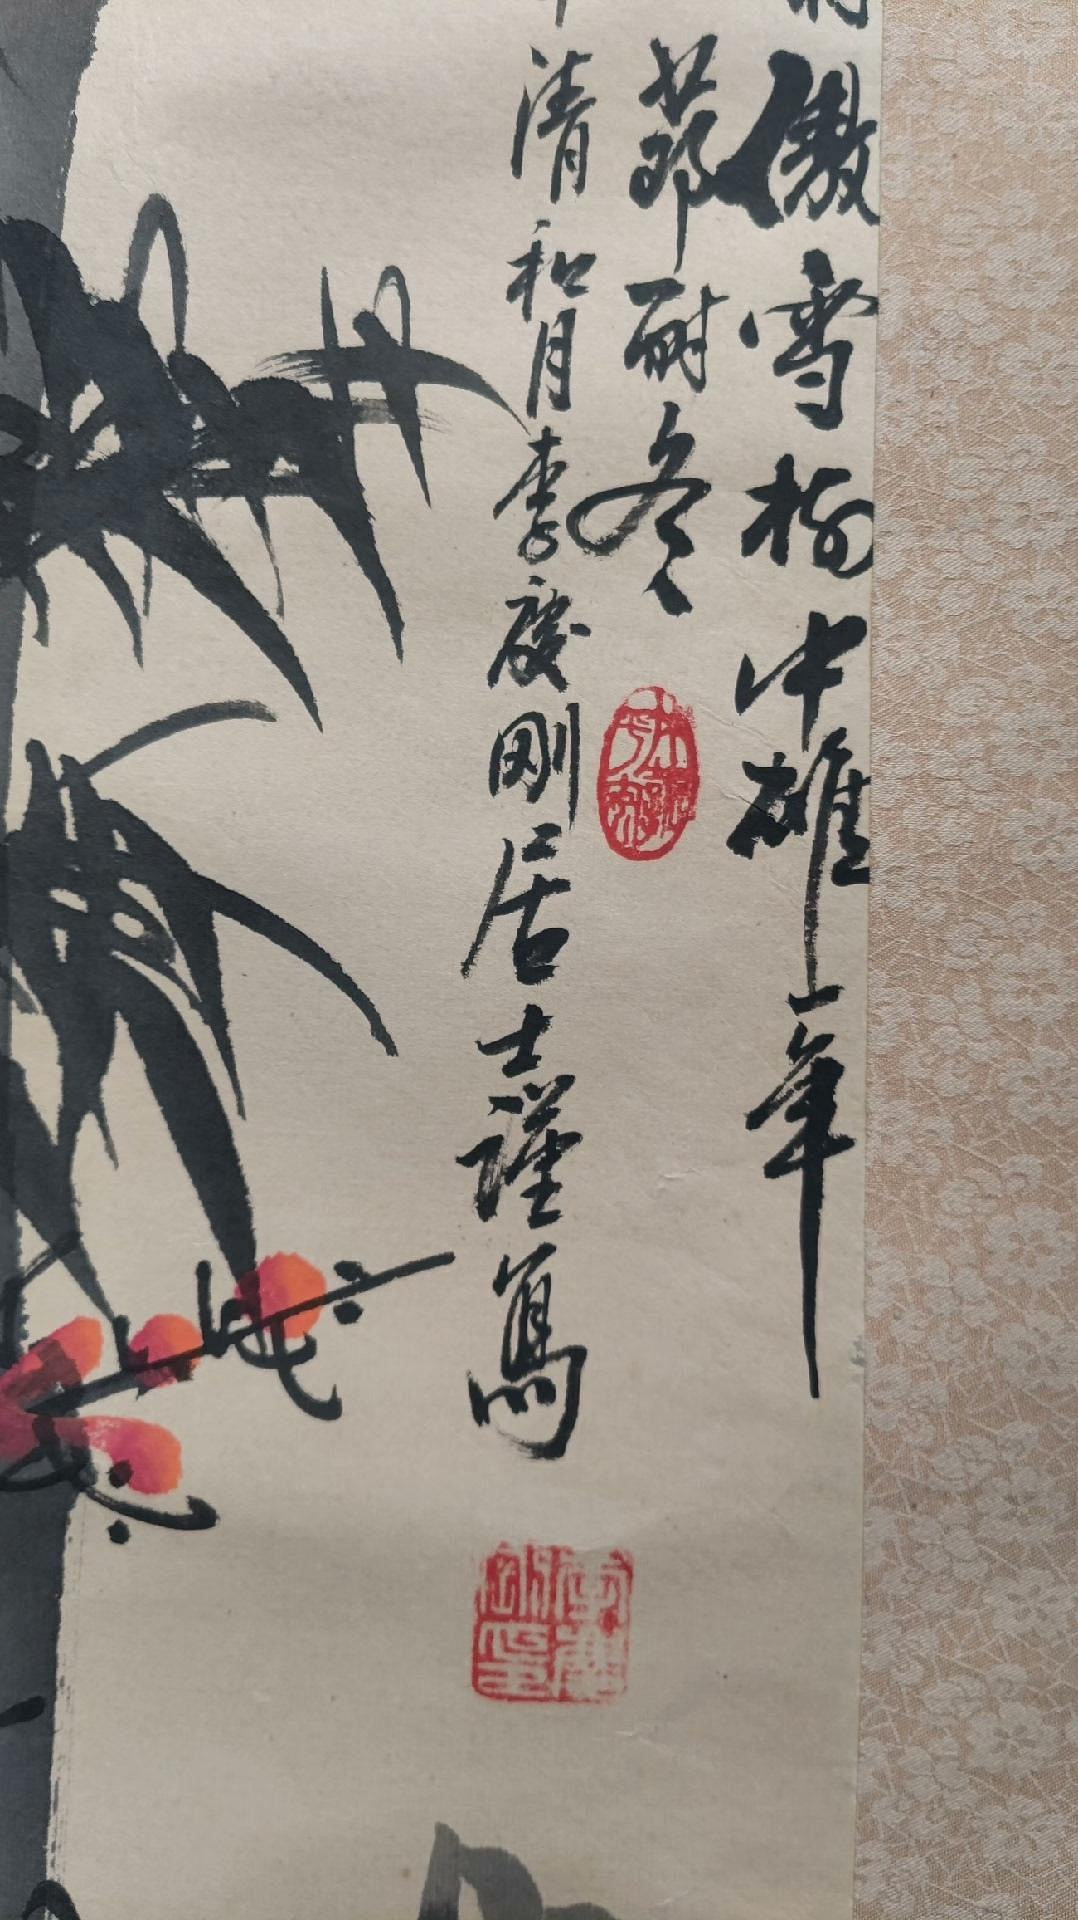 傲雪梅中雄一年
節耐冬
清和月李慶剛居士謹寫